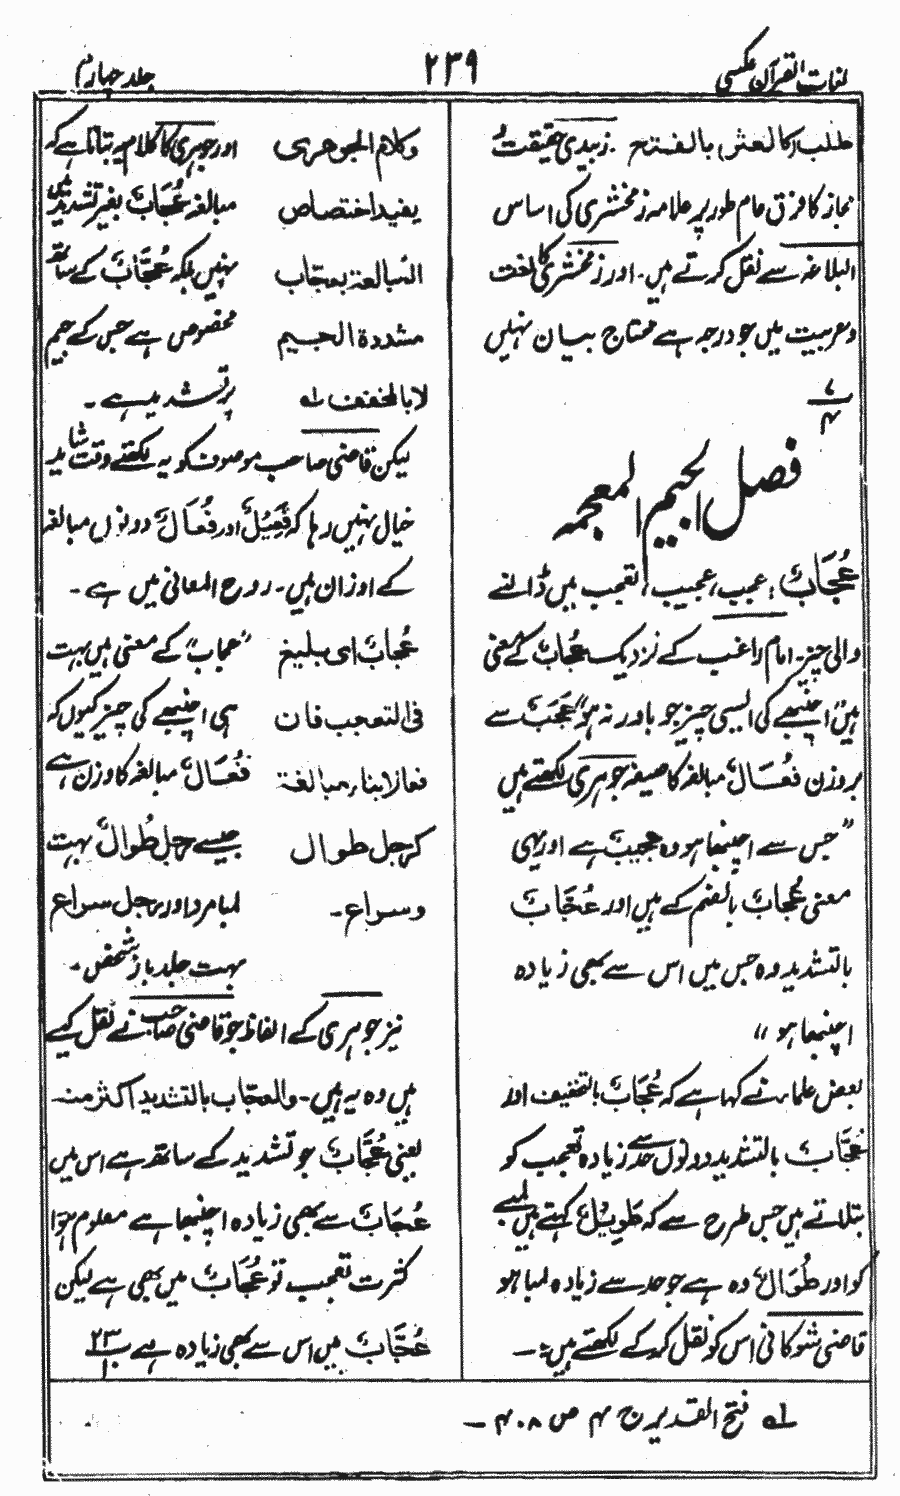 لغات القرآن عکسی
۲۳۹
جلد چہارم
طلب (کالعثر) بالفتح۔ زبیدی حقیقت و
مجاز کا فرق عام طور پر علامہ زمخشری کی اساس
البلاغہ سے نقل کرتے ہیں۔ اور زمخشری کا لغت
و عربیت میں جو درجہ ہے محتاج بیان نہیں
فصل الجیم المعجمہ
عُجَابٌ : عجب، عجیب، تعجب میں ڈالنے
والی چیز۔ امام راغب کے نزدیک عُجَابٌ کے معنی
ہیں "اچنبھے کی ایسی چیز جو باور نہ ہو" عَجَبٌ سے
بروزن فُعَالٌ مبالغہ کا صیغہ جوہری لکھتے ہیں
"جس سے اچنبھا ہو وہ عجیبٌ ہے اور یہی
معنی عُجَابٌ بالضم کے ہیں اور عُجَّابٌ
بالتشدید وہ جس میں اس سے بھی زیادہ
اچنبھا ہو"
بعض علماء نے کہا ہے کہ عُجَابٌ بالتخفیف اور
عُجَّابٌ بالتشدید دونوں حد سے زیادہ تعجب کو
بتلاتے ہیں جس طرح سے کہ طَوِیْلٌ لمبے کہتے ہیں
کو اور طُوَالٌ وہ ہے جو حد سے زیادہ لمبا ہو
قاضی شوکانی اس کو نقل کر کے لکھتے ہیں :۔
وکلام الجوھری
یفید اختصاص
المبالغۃ بعجّاب
مشددۃ الجیم
لا بالمخفف لہ
اور جوہری کا کلام یہ بتاتا ہے کہ
مبالغہ عُجَابٌ بغیر تشدید میں
نہیں بلکہ عُجَّابٌ کے ساتھ
مخصوص ہے جس کے جیم
پر تشدید ہے۔
لیکن قاضی صاحب موصوف کو یہ لکھتے وقت شاید
خیال نہیں رہا کہ فَعِیْلٌ اور فُعَالٌ دونوں مبالغہ
کے اوزان ہیں۔ روح المعانی میں ہے۔
عُجابٌ ای بلیغ
فی التعجب فان
فعالا بناء مبالغۃ
کرجل طوال
وسراع۔
"عجاب" کے معنی ہیں بہت
ہی اچنبھے کی چیز کیوں کہ
فُعَالٌ مبالغہ کا وزن ہے
جیسے رجل طُوالٌ بہت
لمبا مرد اور رجل سراع
بہت جلد باز شخص۔
نیز جوہری کے الفاظ جو قاضی صاحب نے نقل کیے
ہیں وہ یہ ہیں۔ والعجّاب بالتشدید اکثر منہ
یعنی عُجَّابٌ جو تشدید کے ساتھ ہے اس میں
عُجَابٌ سے بھی زیادہ اچنبھا ہے معلوم ہوا
کثرت تعجب تو عُجَابٌ میں بھی ہے لیکن
عُجَّابٌ میں اس سے بھی زیادہ ہے
لہ فتح القدیر ج ۴ ص ۴۰۸۔